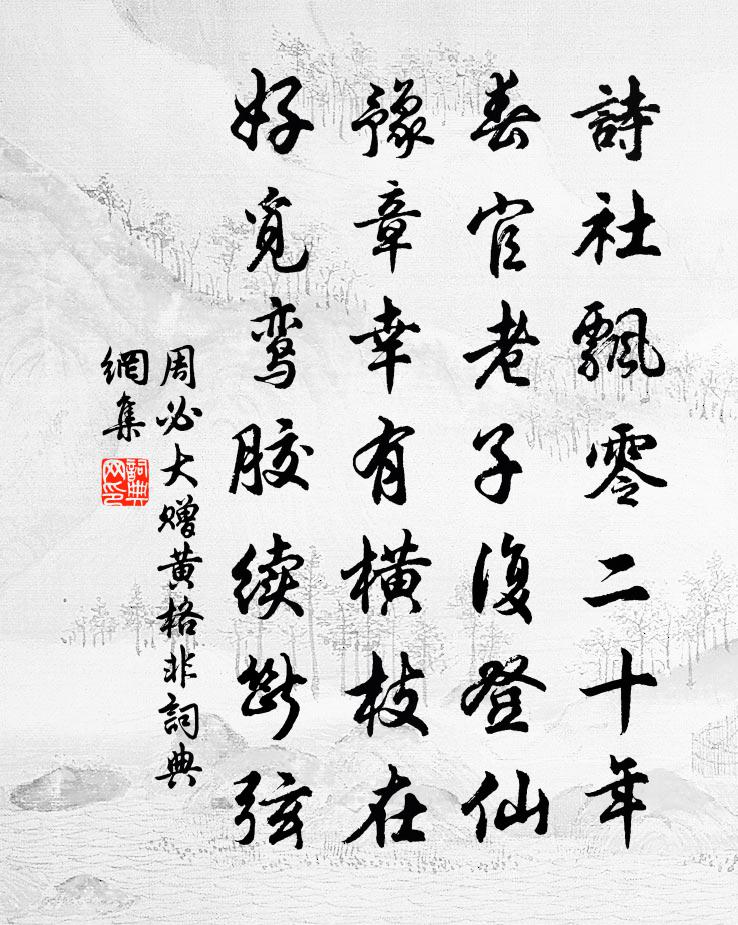 詩社飄零二十年
春官老子復登仙
豫章幸有橫枝在
好覓鸾胶續斷弦
周必大赠黄格非詞典
網集
詞典
网印